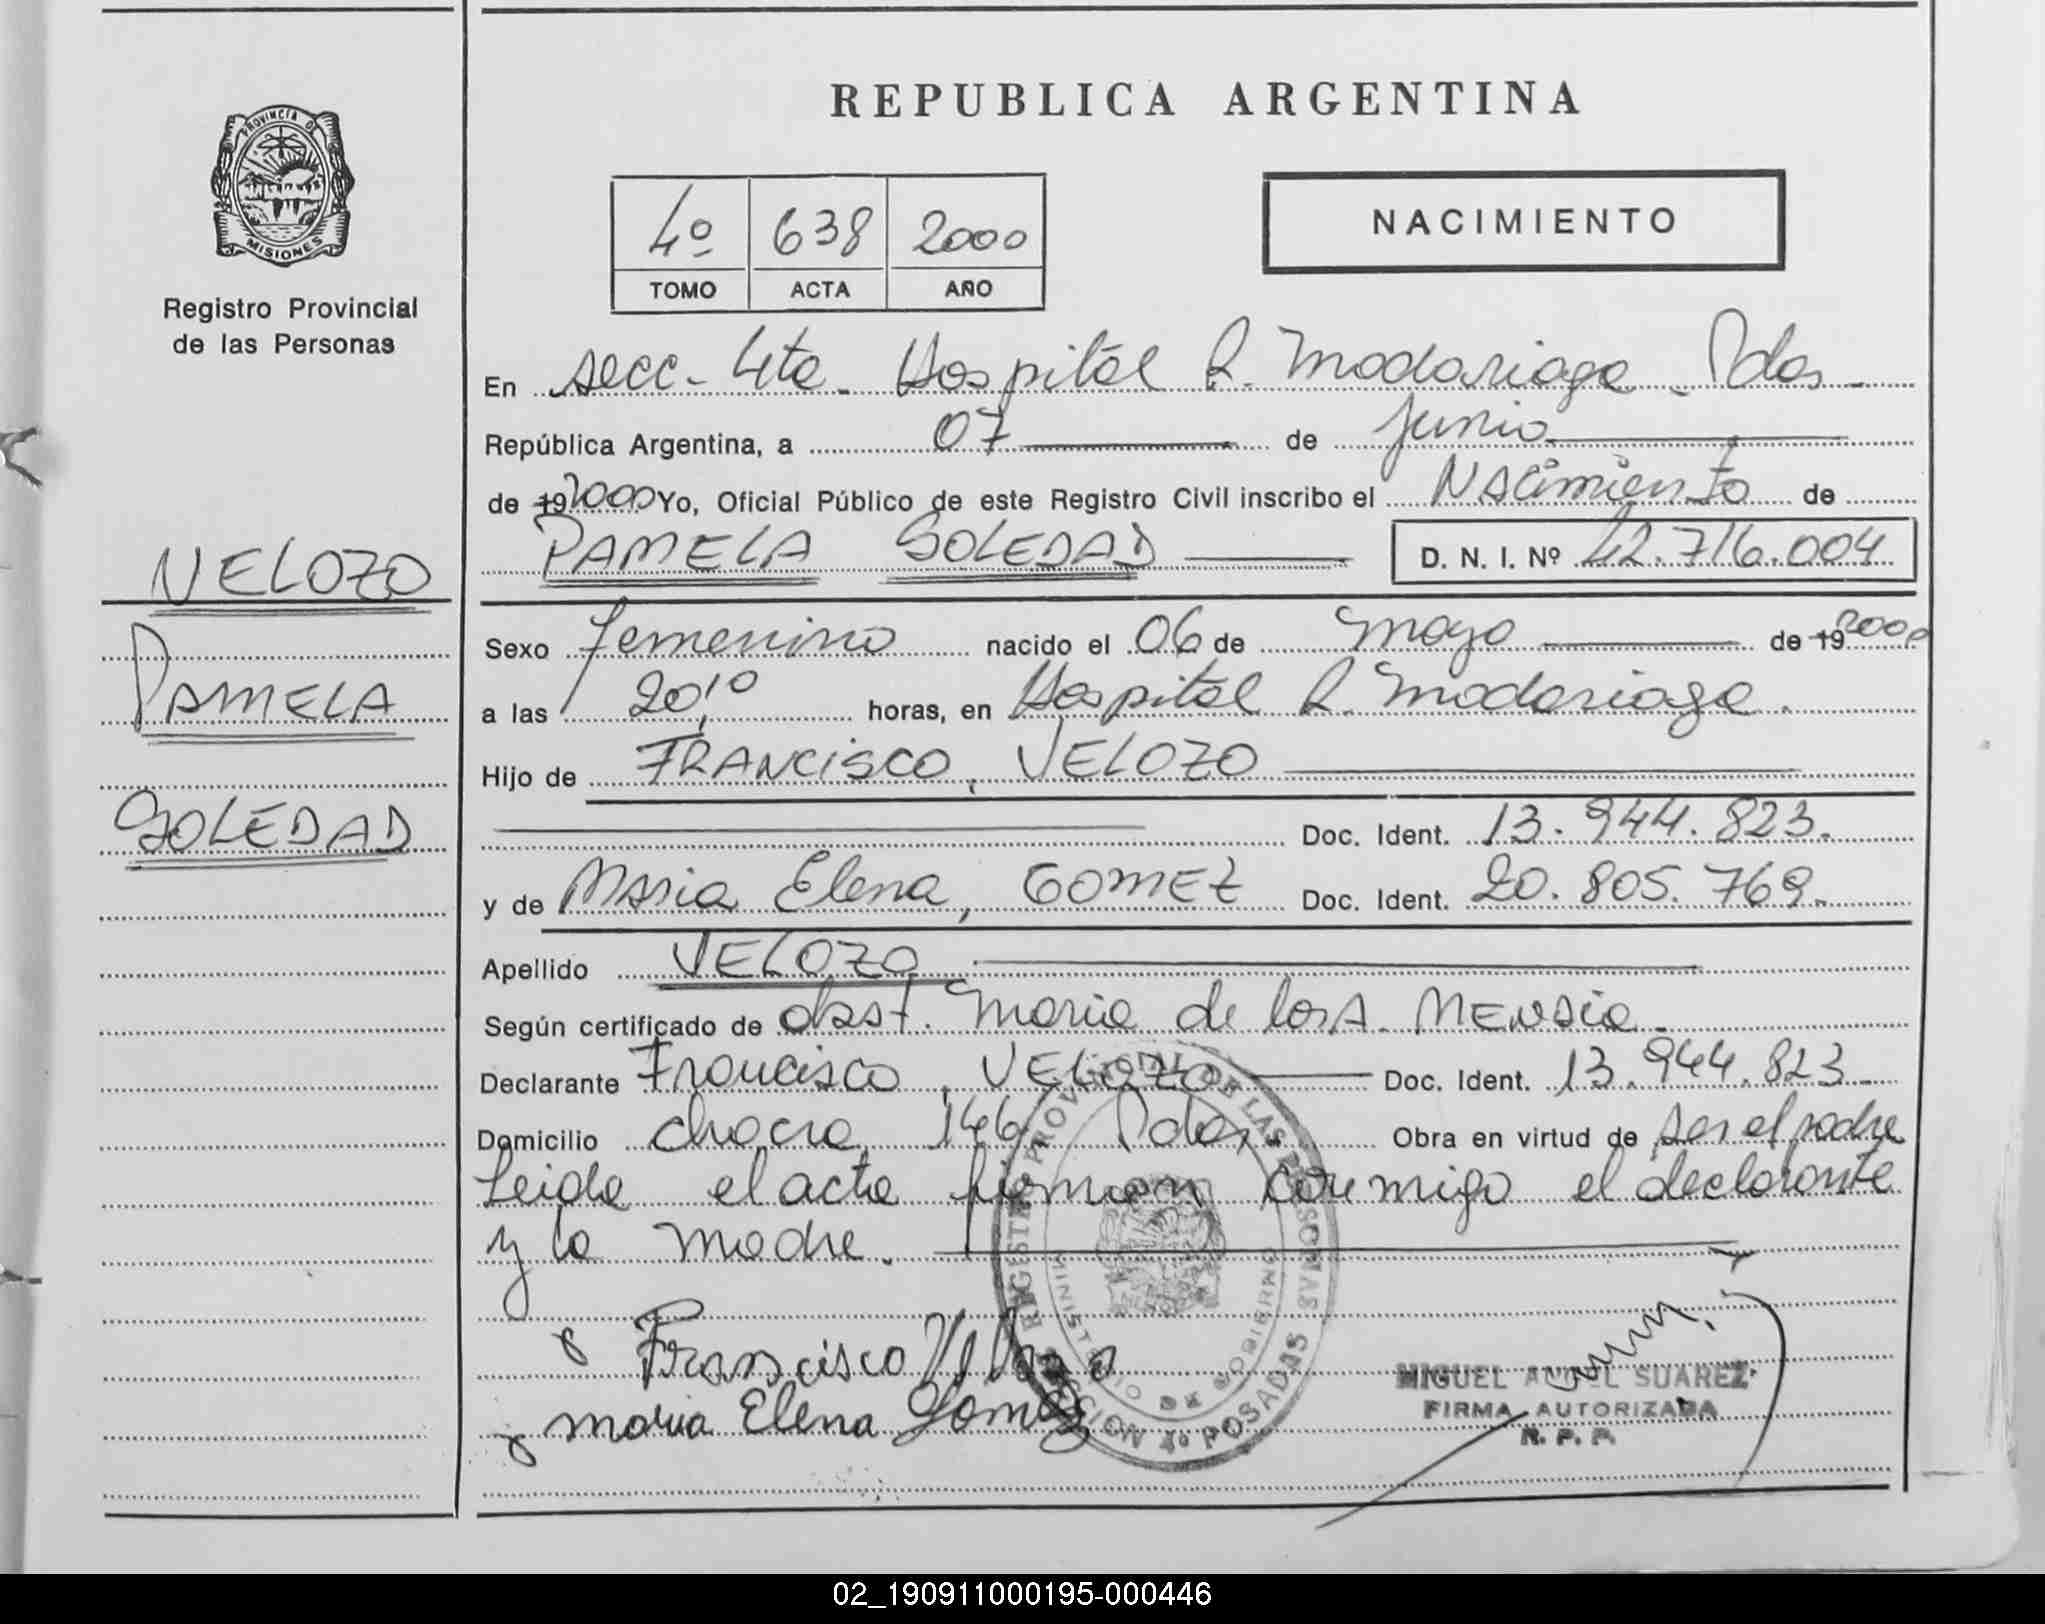 REPUBLICA ARGENTINA
PROVINCIA DE
MISIONES
Registro Provincial
de las Personas
4º 638 2000
TOMO ACTA AÑO
NACIMIENTO
En secc. 4ta. Hospital R. Madariaga. Pdas.
República Argentina, a 07 de junio
de 19 2000 Yo, Oficial Público de este Registro Civil inscribo el Nacimiento de
PAMELA SOLEDAD D. N. I. Nº 42.716.004
VELOZO
PAMELA
SOLEDAD
Sexo femenino nacido el 06 de mayo de 19 2000
a las 20,10 horas, en Hospital R. Madariaga.
Hijo de FRANCISCO, VELOZO
Doc. Ident. 13.944.823.
y de Maria Elena, GOMEZ Doc. Ident. 20.805.769.
Apellido VELOZO
Según certificado de obst. Maria de los A.
Declarante Francisco, VELOZO Doc. Ident. 13.944.823
Domicilio chacra 146, Pdas, Obra en virtud de ser el padre
Leida el acta firman conmigo el declarante
y la madre.
Francisco Velozo
maria Elena Gomez
REGISTRO PROVINCIAL DE LAS PERSONAS
MINISTERIO DE GOBIERNO
SECCION 4º POSADAS
MIGUEL ANGEL SUAREZ
FIRMA AUTORIZADA
R. P. P.
02_190911000195-000446